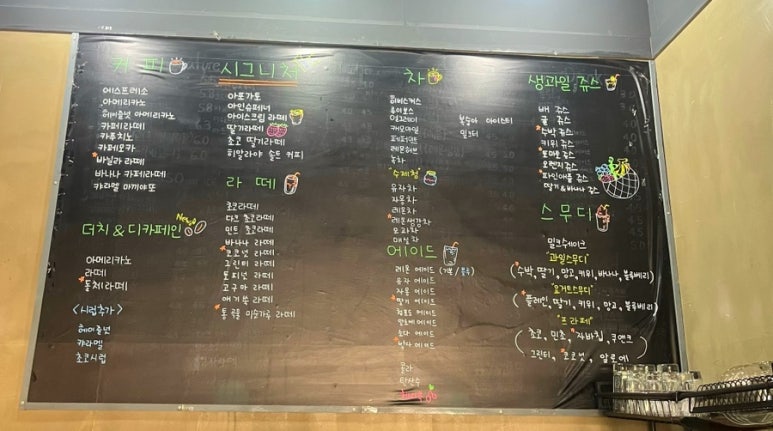 커피
에스프레소
아메리카노
헤이즐넛 아메리카노
카페라떼
카푸치노
카페모카
바닐라 라떼
바나나 카페라떼
카라멜 마끼야또
더치 & 디카페인
New
아메리카노
라떼
돌체라떼
<시럽추가>
헤이즐넛
카라멜
초코시럽
시그니처
아포가토
아인슈페너
아이스크림 라떼
딸기라떼
초코 딸기라떼
히말라야 솔트 커피
라떼
초코라떼
다크 초코라떼
민트 초코라떼
바나나 라떼
코코넛 라떼
그린티 라떼
토피넛 라떼
고구마 라떼
통곡물 미숫가루 라떼
차
히비스커스
루이보스
얼그레이
캐모마일
페퍼민트
레몬허브
녹차
복숭아 아이스티
밀크티
"수제청"
유자차
자몽차
레몬차
레몬생강차
모과차
매실차
에이드
레몬 에이드
유자 에이드
자몽 에이드
딸기 에이드
청포도 에이드
에이드
에이드
에이드
콜라
탄산수
생과일 쥬스
배 쥬스
귤 쥬스
수박 쥬스
키위 쥬스
토마토 쥬스
오렌지 쥬스
파인애플 쥬스
딸기 & 바나나 쥬스
스무디
밀크쉐이크
"과일스무디"
(수박, 딸기, 망고, 키위, 바나나, 블루베리)
"요거트스무디"
(플레인, 딸기, 키위, 망고, 블루베리)
"프라페"
(초코, 민초, 자바칩, 쿠앤크
그린티, 코코넛, 알로에)